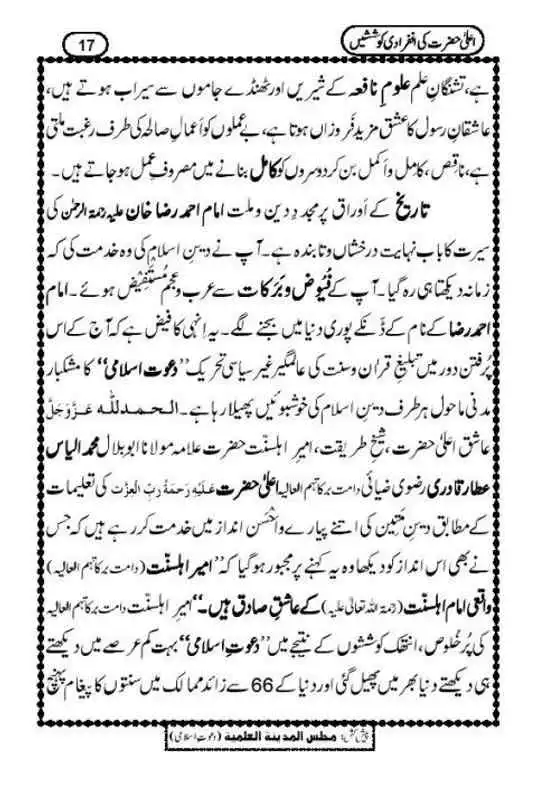 اعلیٰ حضرت کی انفرادی کوششیں
17
ہے، تشنگانِ علم علومِ نافعہ کے شیریں اور ٹھنڈے جاموں سے سیراب ہوتے ہیں،
عاشقانِ رسول کا عشق مزید فَروزاں ہوتا ہے، بے عملوں کو اَعمالِ صالحہ کی طرف رغبت ملتی
ہے، ناقِص، کامِل و اَکمل بن کر دوسروں کو کامل بنانے میں مصروفِ عمل ہو جاتے ہیں۔
تاریخ کے اَوراق پر مجددِ دین و ملت امام احمد رضا خان علیہ رحمۃ الرحمٰن کی
سیرت کا باب نہایت درخشاں و تابندہ ہے۔ آپ نے دینِ اسلام کی وہ خدمت کی کہ
زمانہ دیکھتا ہی رہ گیا۔ آپ کے فُیُوض و بَرَکات سے عرب و عجم مُستَفِیض ہوئے۔ امام
احمد رضا کے نام کے ڈَنکے پوری دنیا میں بجنے لگے۔ یہ اِنہی کا فیض ہے کہ آج کے اس
پُرفتن دور میں تبلیغِ قرآن وسنت کی عالمگیر غیر سیاسی تحریک ”دعوت اسلامی“ کا مشکبار
مدنی ماحول ہر طرف دینِ اسلام کی خوشبوئیں پھیلا رہا ہے۔ الحمدللّٰہ عَزَّوَجَلَّ
عاشقِ اعلیٰ حضرت، شیخِ طریقت، امیرِ اہلسنّت حضرت علامہ مولانا ابوبلال محمد الیاس
عطار قادری رضوی ضیائی دامت برکاتہم العالیہ اعلیٰ حضرت عَلَیْہِ رَحمَۃُ رَبِّ الْعِزَّت کی تعلیمات
کے مطابق دینِ مَتِین کی اتنے پیارے و اَحْسَن انداز میں خدمت کر رہے ہیں کہ جس
نے بھی اس انداز کو دیکھا وہ یہ کہنے پر مجبور ہو گیا کہ ”امیرِ اہلسنّت (دامت برکاتہم العالیہ)
واقعی امامِ اہلسنّت (رحمۃ اللہ تعالیٰ علیہ) کے عاشقِ صادق ہیں۔“ امیرِ اہلسنّت دامت برکاتہم العالیہ
کی پُرخُلوص، انتھک کوششوں کے نتیجے میں ”دعوتِ اسلامی“ بہت کم عرصے میں دیکھتے
ہی دیکھتے دنیا بھر میں پھیل گئی اور دنیا کے 66 سے زائد ممالک میں سنتوں کا پیغام پہنچ
پیش کش: مجلس المدینۃ العلمیۃ (دعوتِ اسلامی)